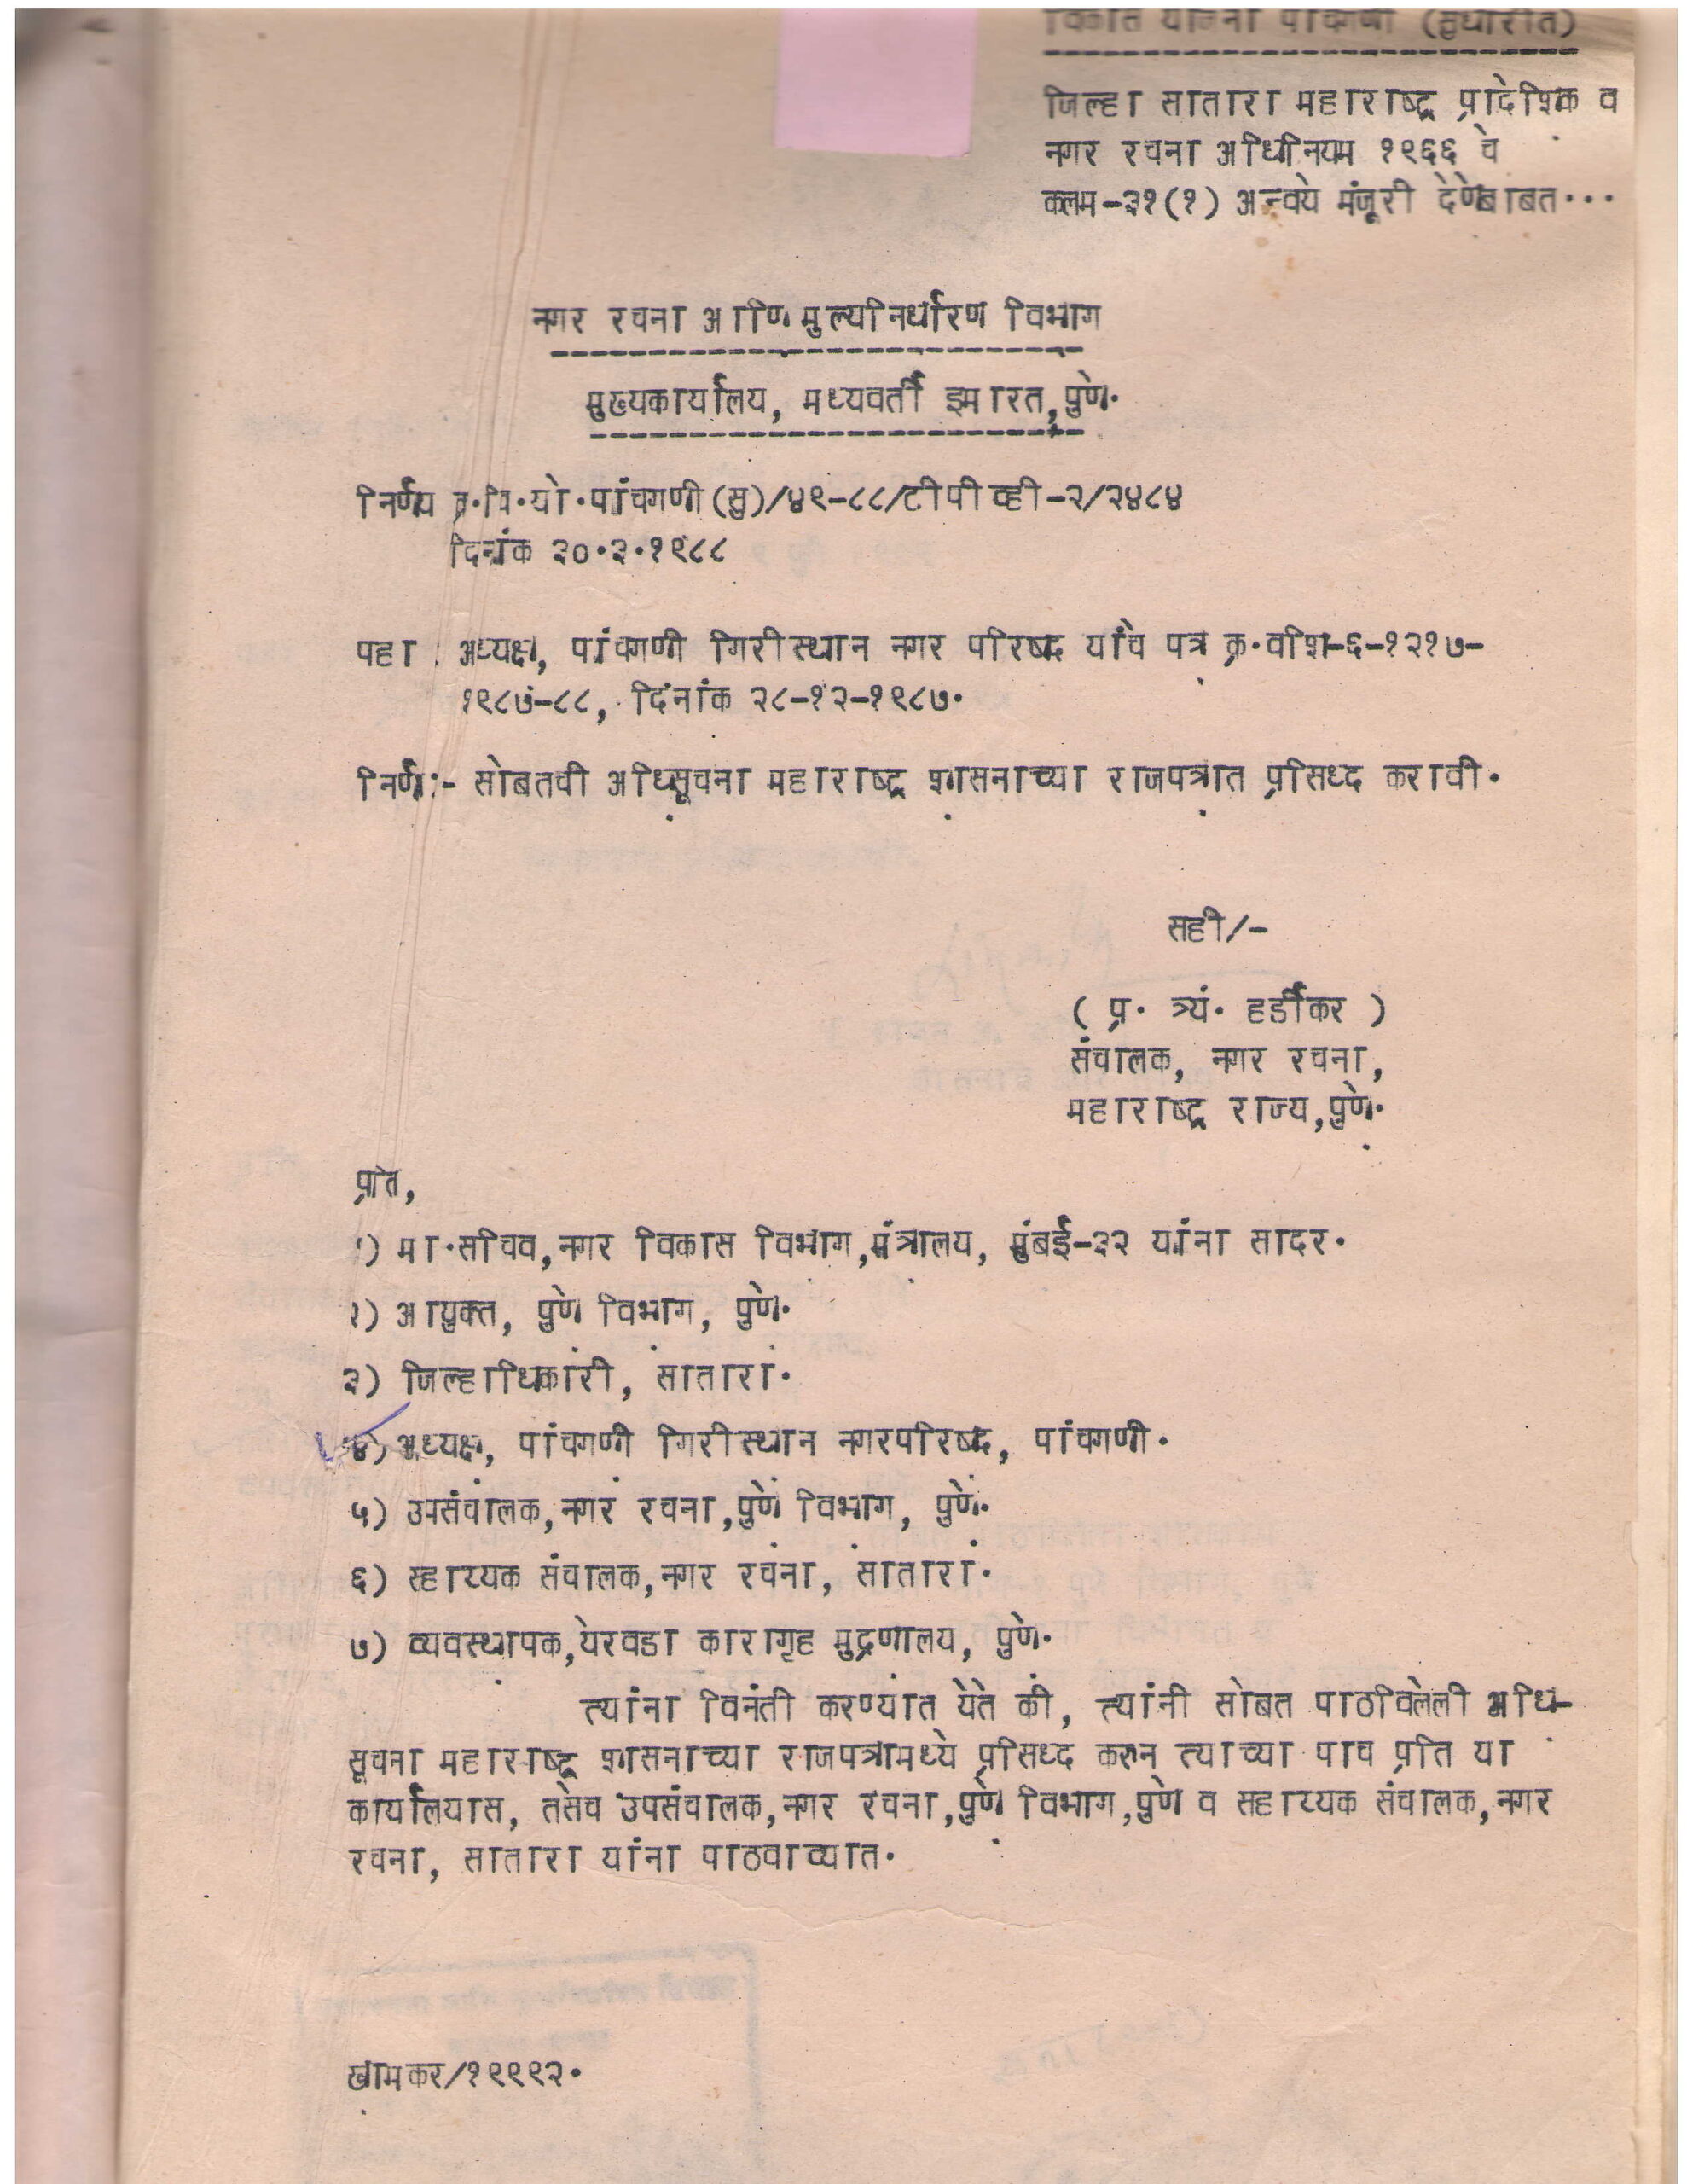 विकास योजना पांचगणी (सुधारीत)
जिल्हा सातारा महाराष्ट्र प्रादेशिक व
नगर रचना अधिनियम १९६६ चे
कलम-३१(१) अन्वये मंजूरी देणेबाबत...
नगर रचना आणि मुल्यनिर्धारण विभाग
मुख्यकार्यालय, मध्यवर्ती इमारत,पुणे.
निर्णय क्र.वि.यो.पांचगणी(सु)/४९-८८/टीपीव्ही-२/२४८४
दिनांक ३०.३.१९८८
पहा : अध्यक्ष, पांचगणी गिरीस्थान नगर परिषद यांचे पत्र क्र.वशि-६-१२१७-
१९८७-८८, दिनांक २८-१२-१९८७.
निर्णय:- सोबतची अधिसूचना महाराष्ट्र शासनाच्या राजपत्रात प्रसिध्द करावी.
सही/-
( प्र. त्र्यं. हर्डीकर )
संचालक, नगर रचना,
महाराष्ट्र राज्य,पुणे.
प्रति,
१) मा.सचिव,नगर विकास विभाग,मंत्रालय, मुंबई-३२ यांना सादर.
२) आयुक्त, पुणे विभाग, पुणे.
३) जिल्हाधिकारी, सातारा.
४) अध्यक्ष, पांचगणी गिरीस्थान नगरपरिषद, पांचगणी.
५) उपसंचालक,नगर रचना,पुणे विभाग, पुणे.
६) स्हाय्यक संचालक,नगर रचना, सातारा.
७) व्यवस्थापक,येरवडा कारागृह मुद्रणालय, पुणे.
त्यांना विनंती करण्यांत येते की, त्यांनी सोबत पाठविलेली अधि-
सूचना महाराष्ट्र शासनाच्या राजपत्रामध्ये प्रसिध्द करुन त्याच्या पाच प्रति या
कार्यालयास, तसेच उपसंचालक,नगर रचना,पुणे विभाग,पुणे व सहाय्यक संचालक,नगर
रचना, सातारा यांना पाठवाव्यात.
खामकर/१९९९२.